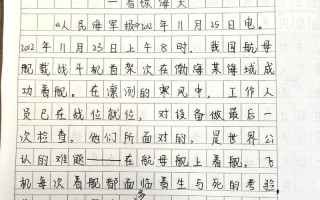 一着惊海天
《人民海军报》2012年11月25日电。
2012年11月23日上午8时，我国航母
舰载战斗机首架次在渤海某海域成
功着舰。在凛冽的寒风中，工作人
员已在战位就位，对设备做最后一
次检查，他们所面对的，是世界公
认的难题——在航母舰上着舰，飞
机每次着舰都面临着生与死的考验，